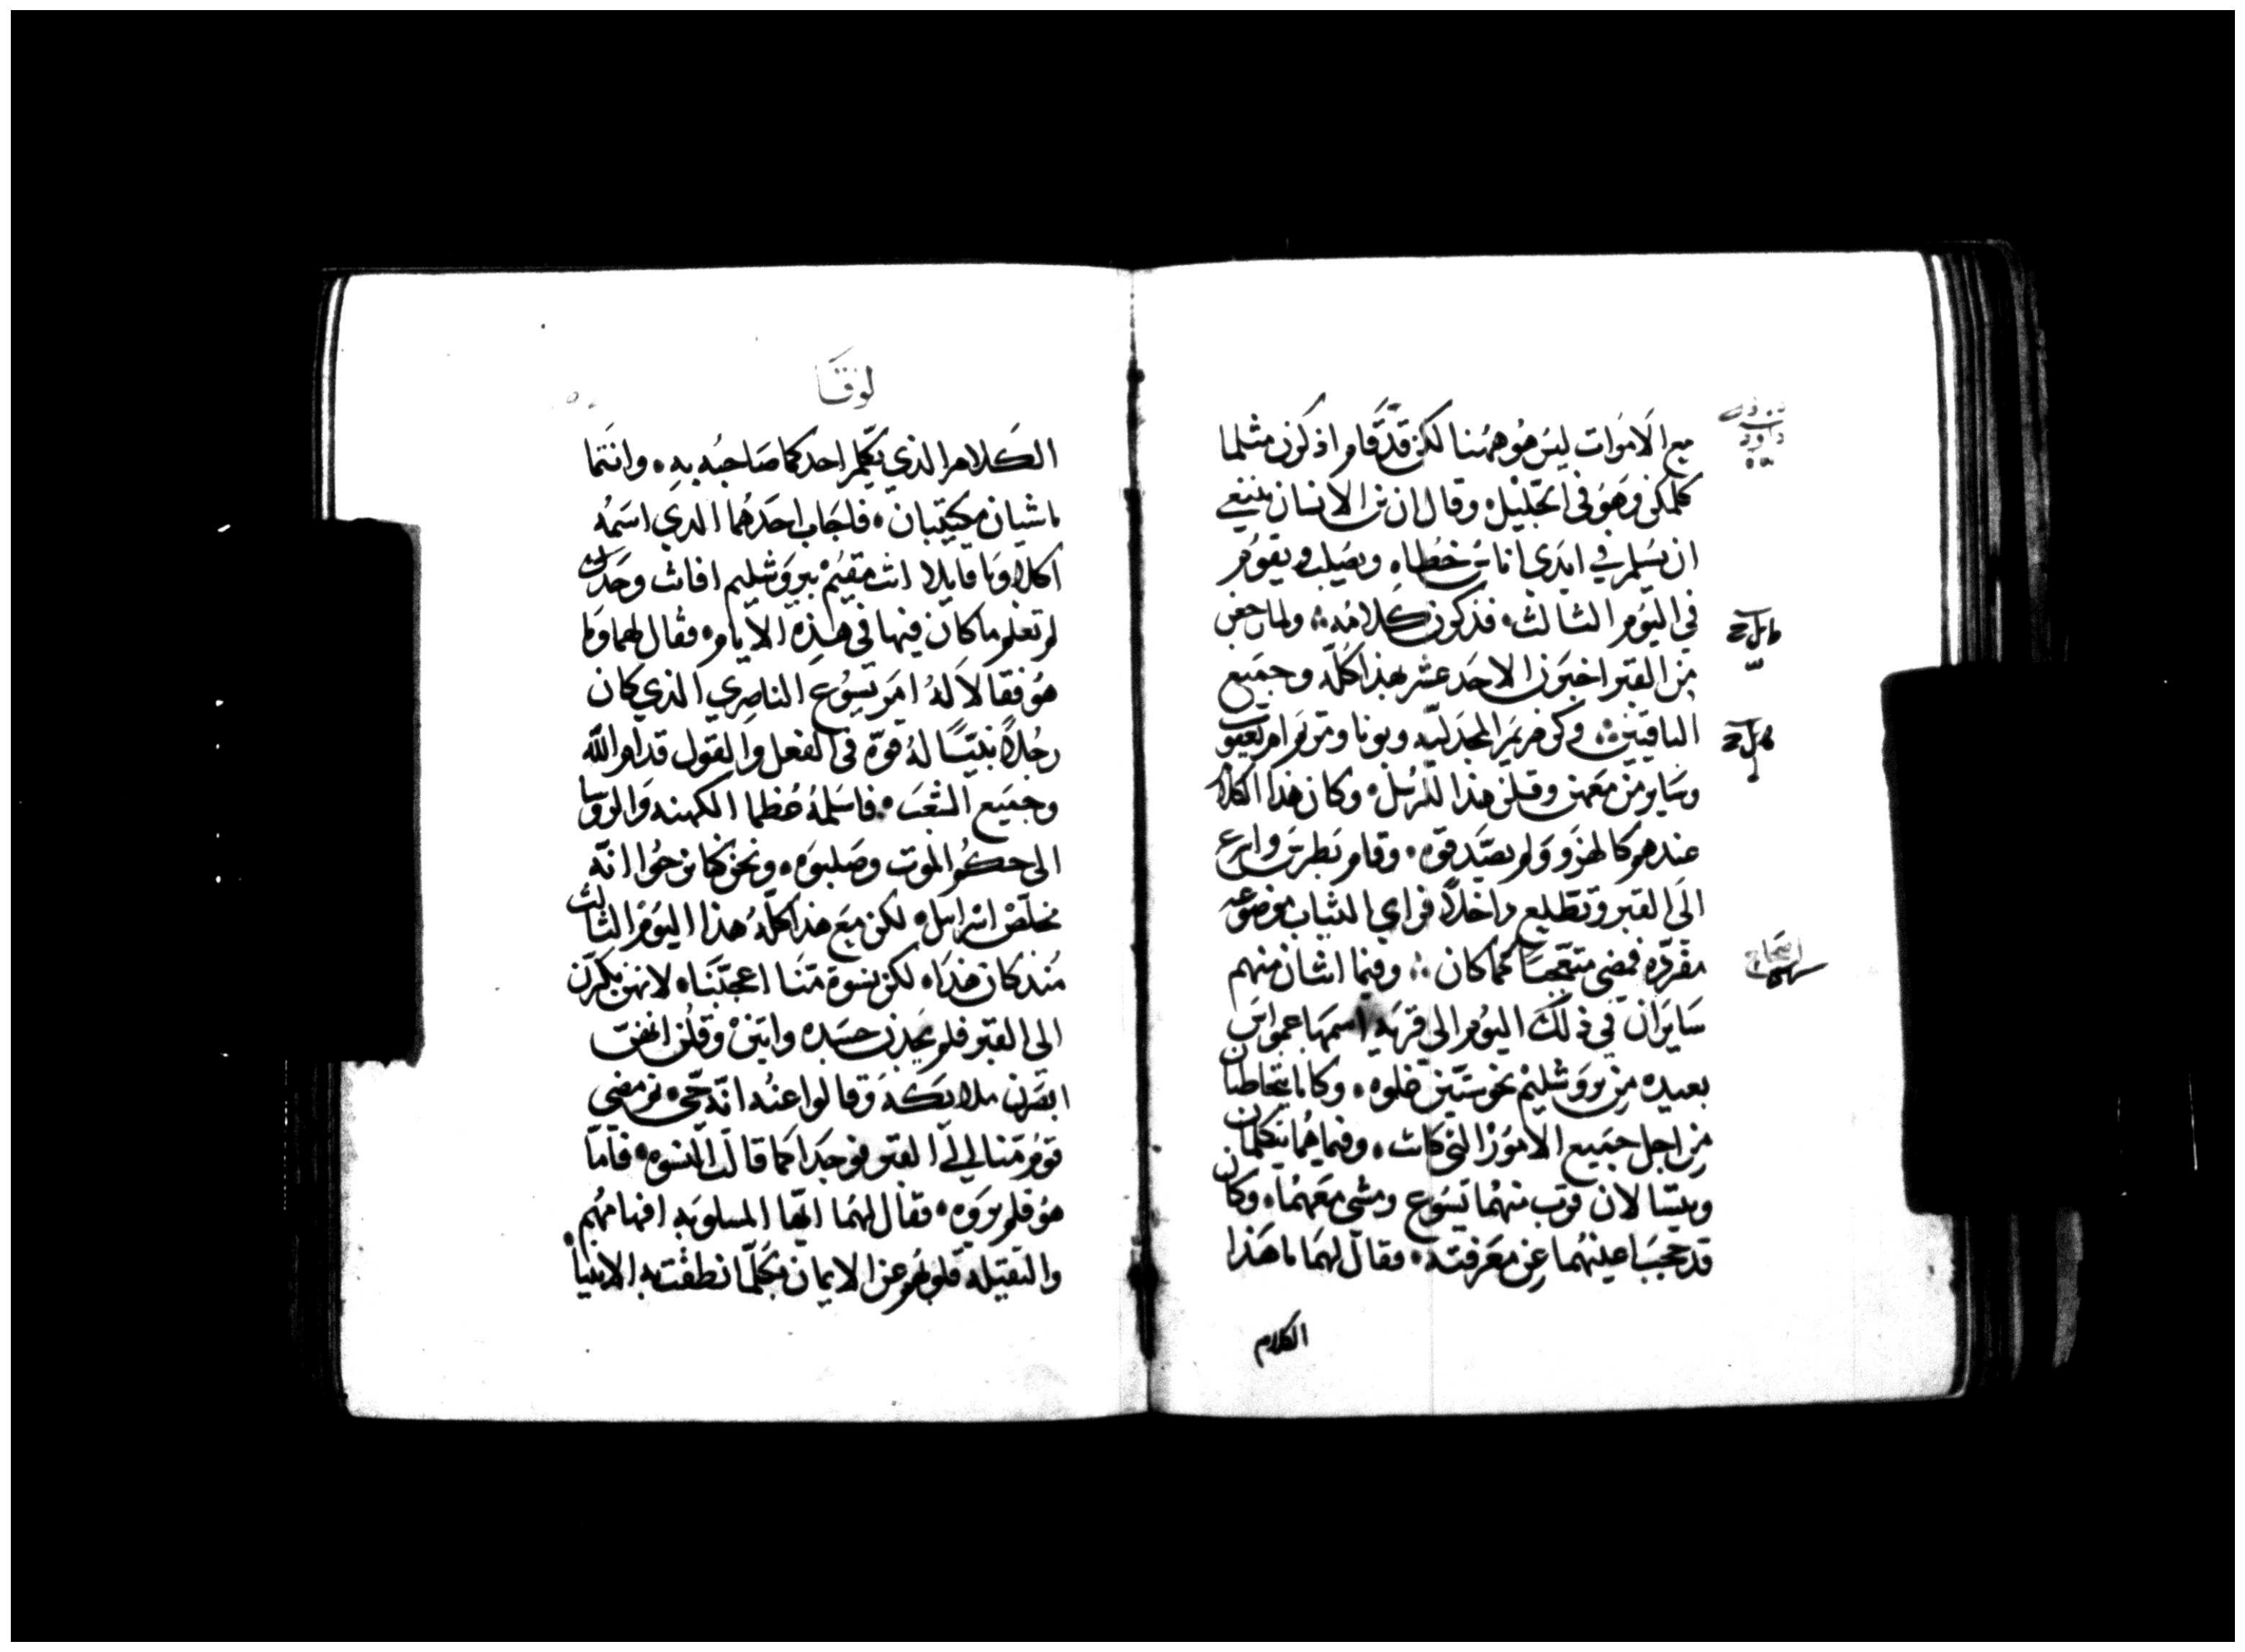 مع الاموات ليس هو ههنا لكن قد قام اذكرن مثلما
كلمكن وهو في الجليل وقال ان بن الانسان ينبغي
ان يسلم في ايدي اناس خطاه ويصلب ويقوم
في اليوم الثالث فذكرن كلامه ولما رجعن
من القبر اخبرن الاحد عشر بهذا كله وجميع
الباقيين وكن مريم المجدليه ويونا ومريم ام يعقوب
وساير من معهن وقلن هذا للرسل وكان هذا الكلام
عندهم كالهزو ولم يصدقوه وقام بطرس واسرع
الى القبر وتطلع داخلا فراي الثياب موضوعه
مفرده فمضى متعجبا مما كان وفيما اثنان منهم
سايران في ذلك اليوم الي قريه اسمها عمواس
بعيده من يروشليم نحو ستين غلوه وكانا يتخاطبان
من اجل جميع الامور التي كانت وفيما هما يتكلمان
ويتسالان قرب منهما يسوع ومشي معهما وكان
قد حجب اعينهما عن معرفته فقال لهما ما هذا
الكلام
لوقا
الكلام الذي يكلم احدكما صاحبه به وانتما
ماشيان مكتيبان فاجاب احدهما الدي اسمه
اكلاوبا قايلا انت مقيم بيروشليم افانت وحدك
لم تعلم ما كان فيها في هذه الايام فقال لهما وما
هو فقالا له امر يسوع الناصري الذي كان
رجلا نبيا له قوه في الفعل والقول قدام الله
وجميع الشعب فاسلمه عظما الكهنه والروسا
الى حكم الموت وصلبوه ونحن كنا نرجوا انه
مخلص اسراييل لكن مع هذا كله هذا اليوم الثالث
مند كان هذا لكن نسوة منا اعجبننا لانهن بكرن
الى القبر فلم يجدن جسده واتين وقلن انهن
ابصرن ملايكه وقالوا عنه انه حي ثم مضى
قوم منا الى القبر فوجدا كما قالت النسوه فاما
هو فلم يروه فقال لهما ايها المسلوبه افهامهم
والثقيله قلوبهم عن الايمان بكلما نطقت به الانبيا